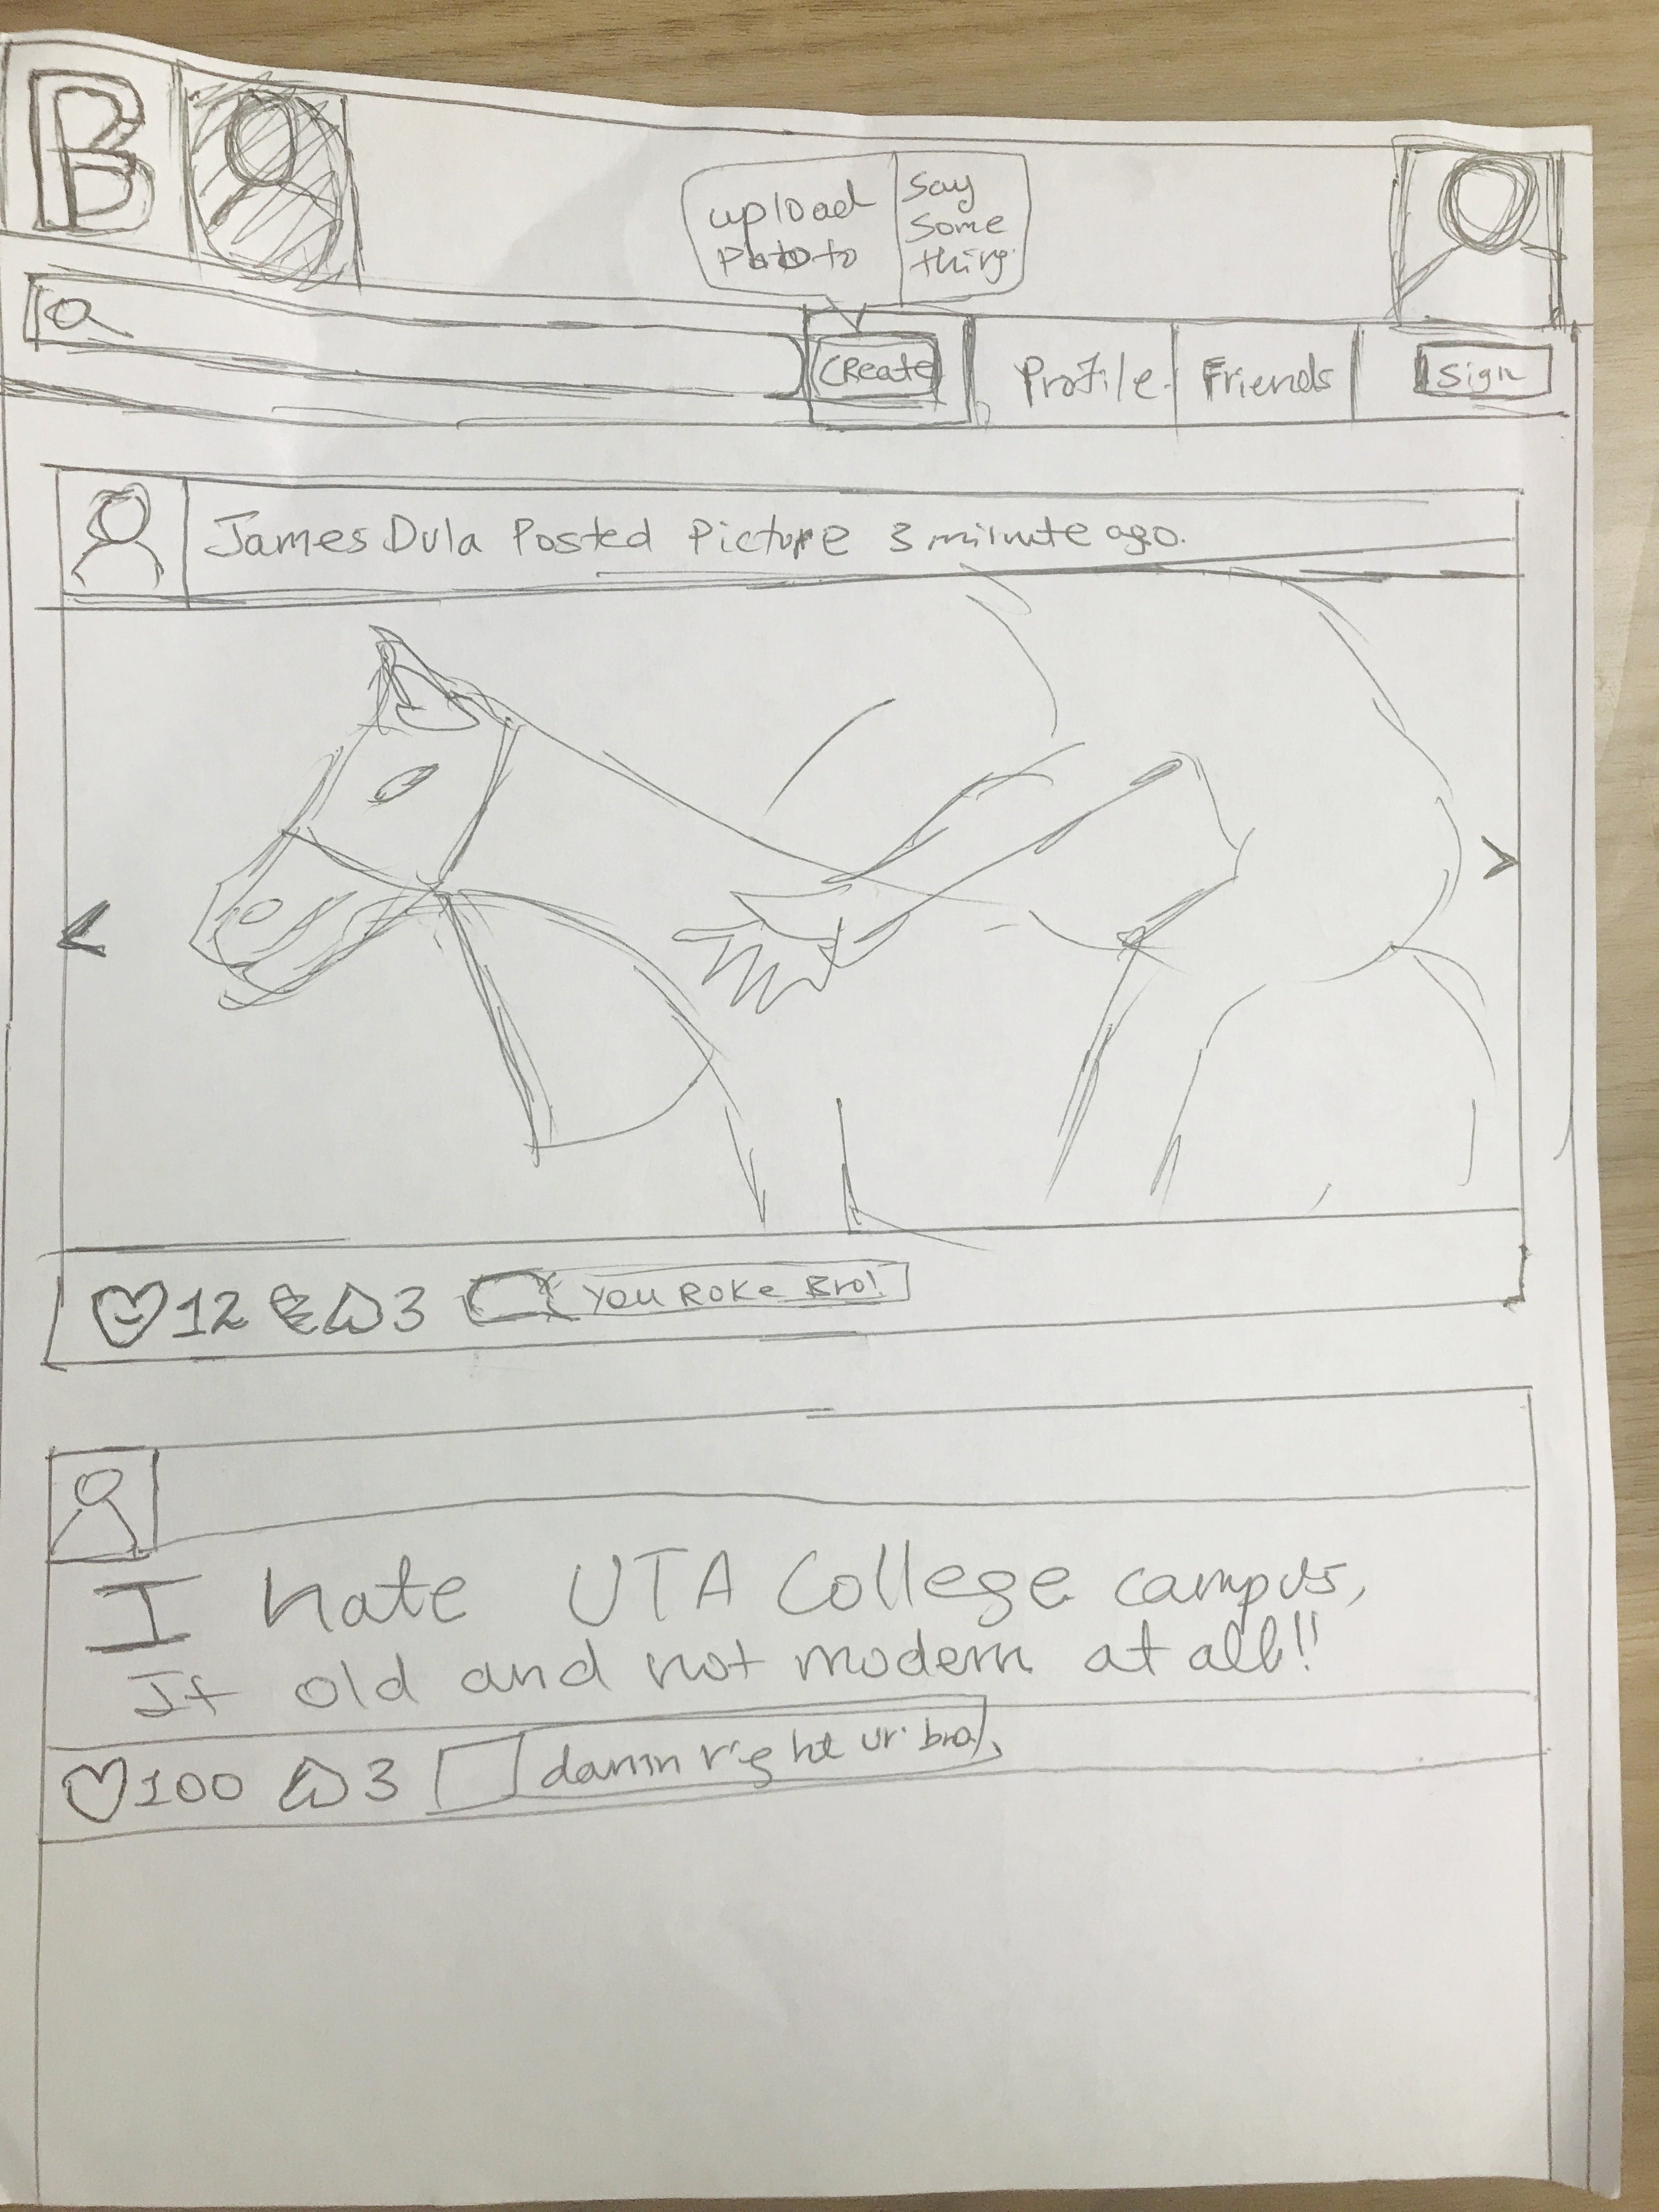 B
upload
Photo
Say
Some
thing
Create
Profile
Friends
Sign
James Dula Posted Picture 3 minute ago.
<
>
12 3 You Roke Bro!
I hate UTA College campus,
It old and not modern at all!!
100 3 damn right ur bro